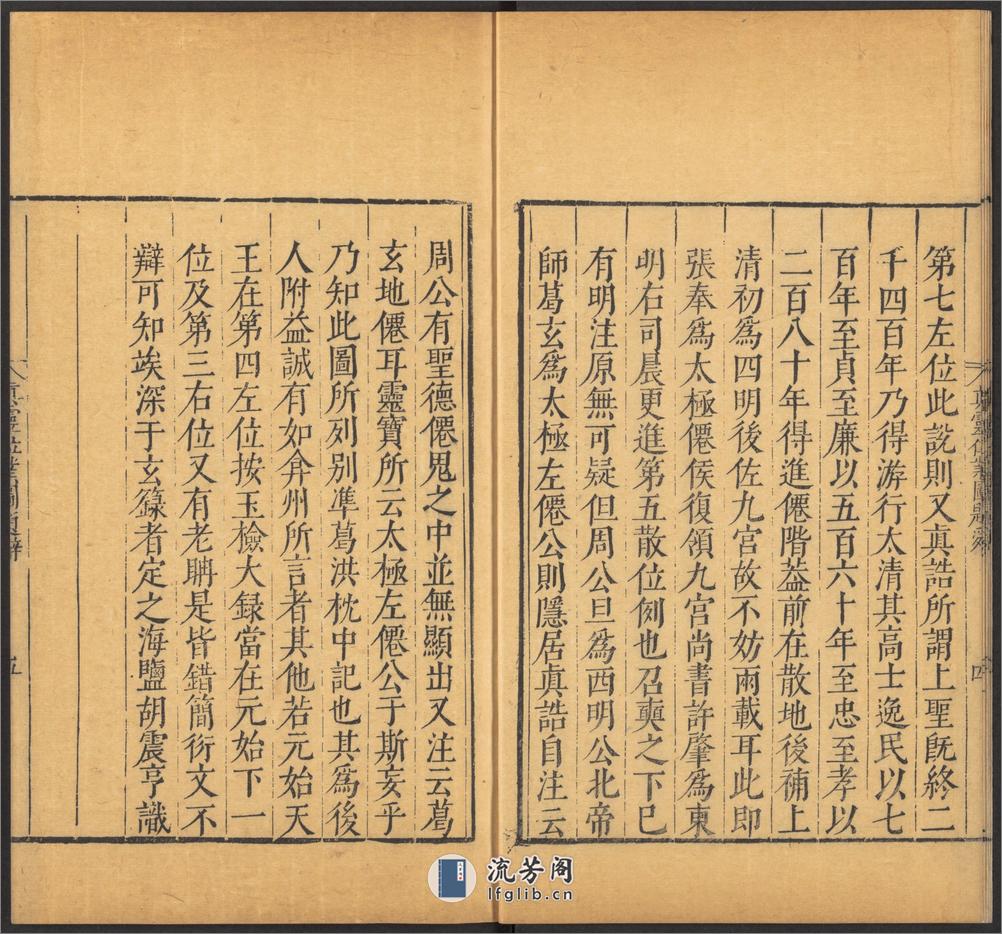 第七左位此說則又眞誥所謂上聖旣終二
千四百年乃得游行太清其高士逸民以七
百年至貞至廉以五百六十年至忠至孝以
二百八十年得進僊階葢前在散地後補上
清初爲四明後佐九宮故不妨兩載耳此即
張奉爲太極僊侯復領九宮尚書許肇爲東
明右司晨更進第五散位例也召奭之下巳
有明注原無可疑但周公旦爲西明公北帝
師葛玄爲太極左僊公則隱居眞誥自注云
四
周公有聖德僊鬼之中並無顯出又注云葛
玄地僊耳靈寶所云太極左僊公于斯妄乎
乃知此圖所列别凖葛洪枕中記也其爲後
人附益誠有如弇州所言者其他若元始天
王在第四左位按玉檢大録當在元始下一
位及第三右位又有老聃是皆錯簡衍文不
辯可知竢深于玄籙者定之海鹽胡震亨識
五
流芳阁
lfglib.cn